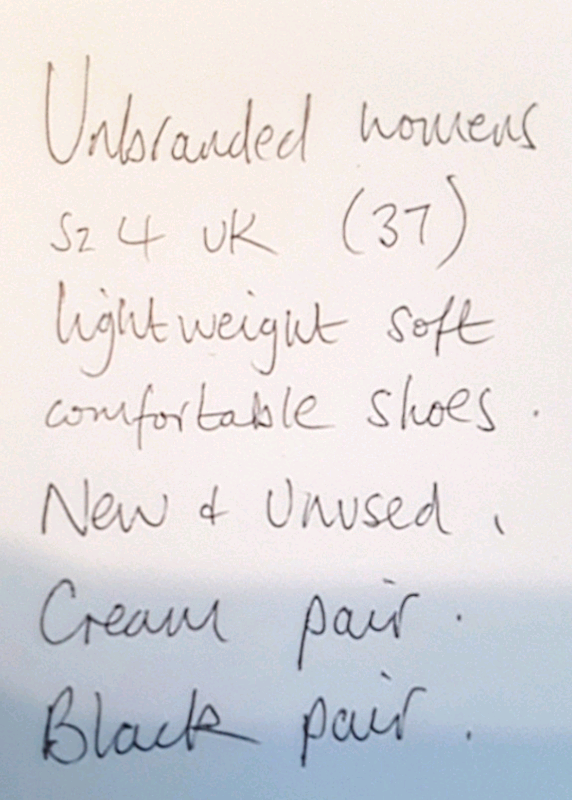 Unbranded womens
Sz 4 UK (37)
lightweight soft
comfortable shoes.
New & Unused.
Cream pair.
Black pair.